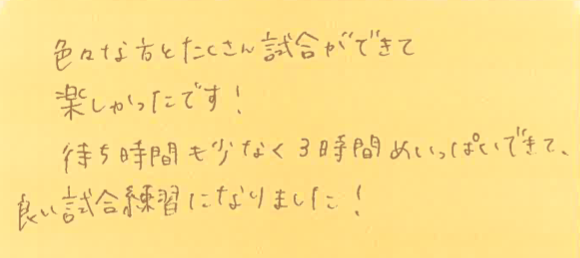 色々な方とたくさん試合ができて
楽しかったです!
待ち時間も少なく3時間めいっぱいできて、
良い試合練習になりました!